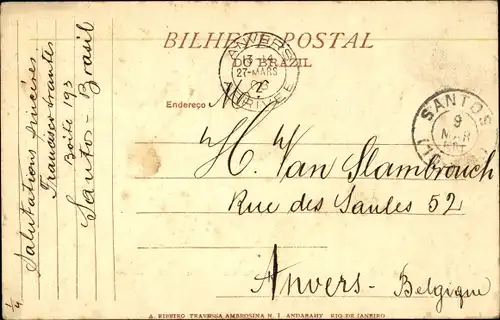 BILHETE POSTAL
DO BRAZIL
ANVERS
27 MARS
ARRIVÉE
SANTOS
9
MAR
Endereço M.
H. Van Slambrouch
Rue des Saules 52
Anvers - Belgique
Salutations sincères
Francisco
Boite 193
Santos - Brasil
A. RIBEIRO TRAVESSA AMBROSINA N. 1 ANDARAHY RIO DE JANEIRO